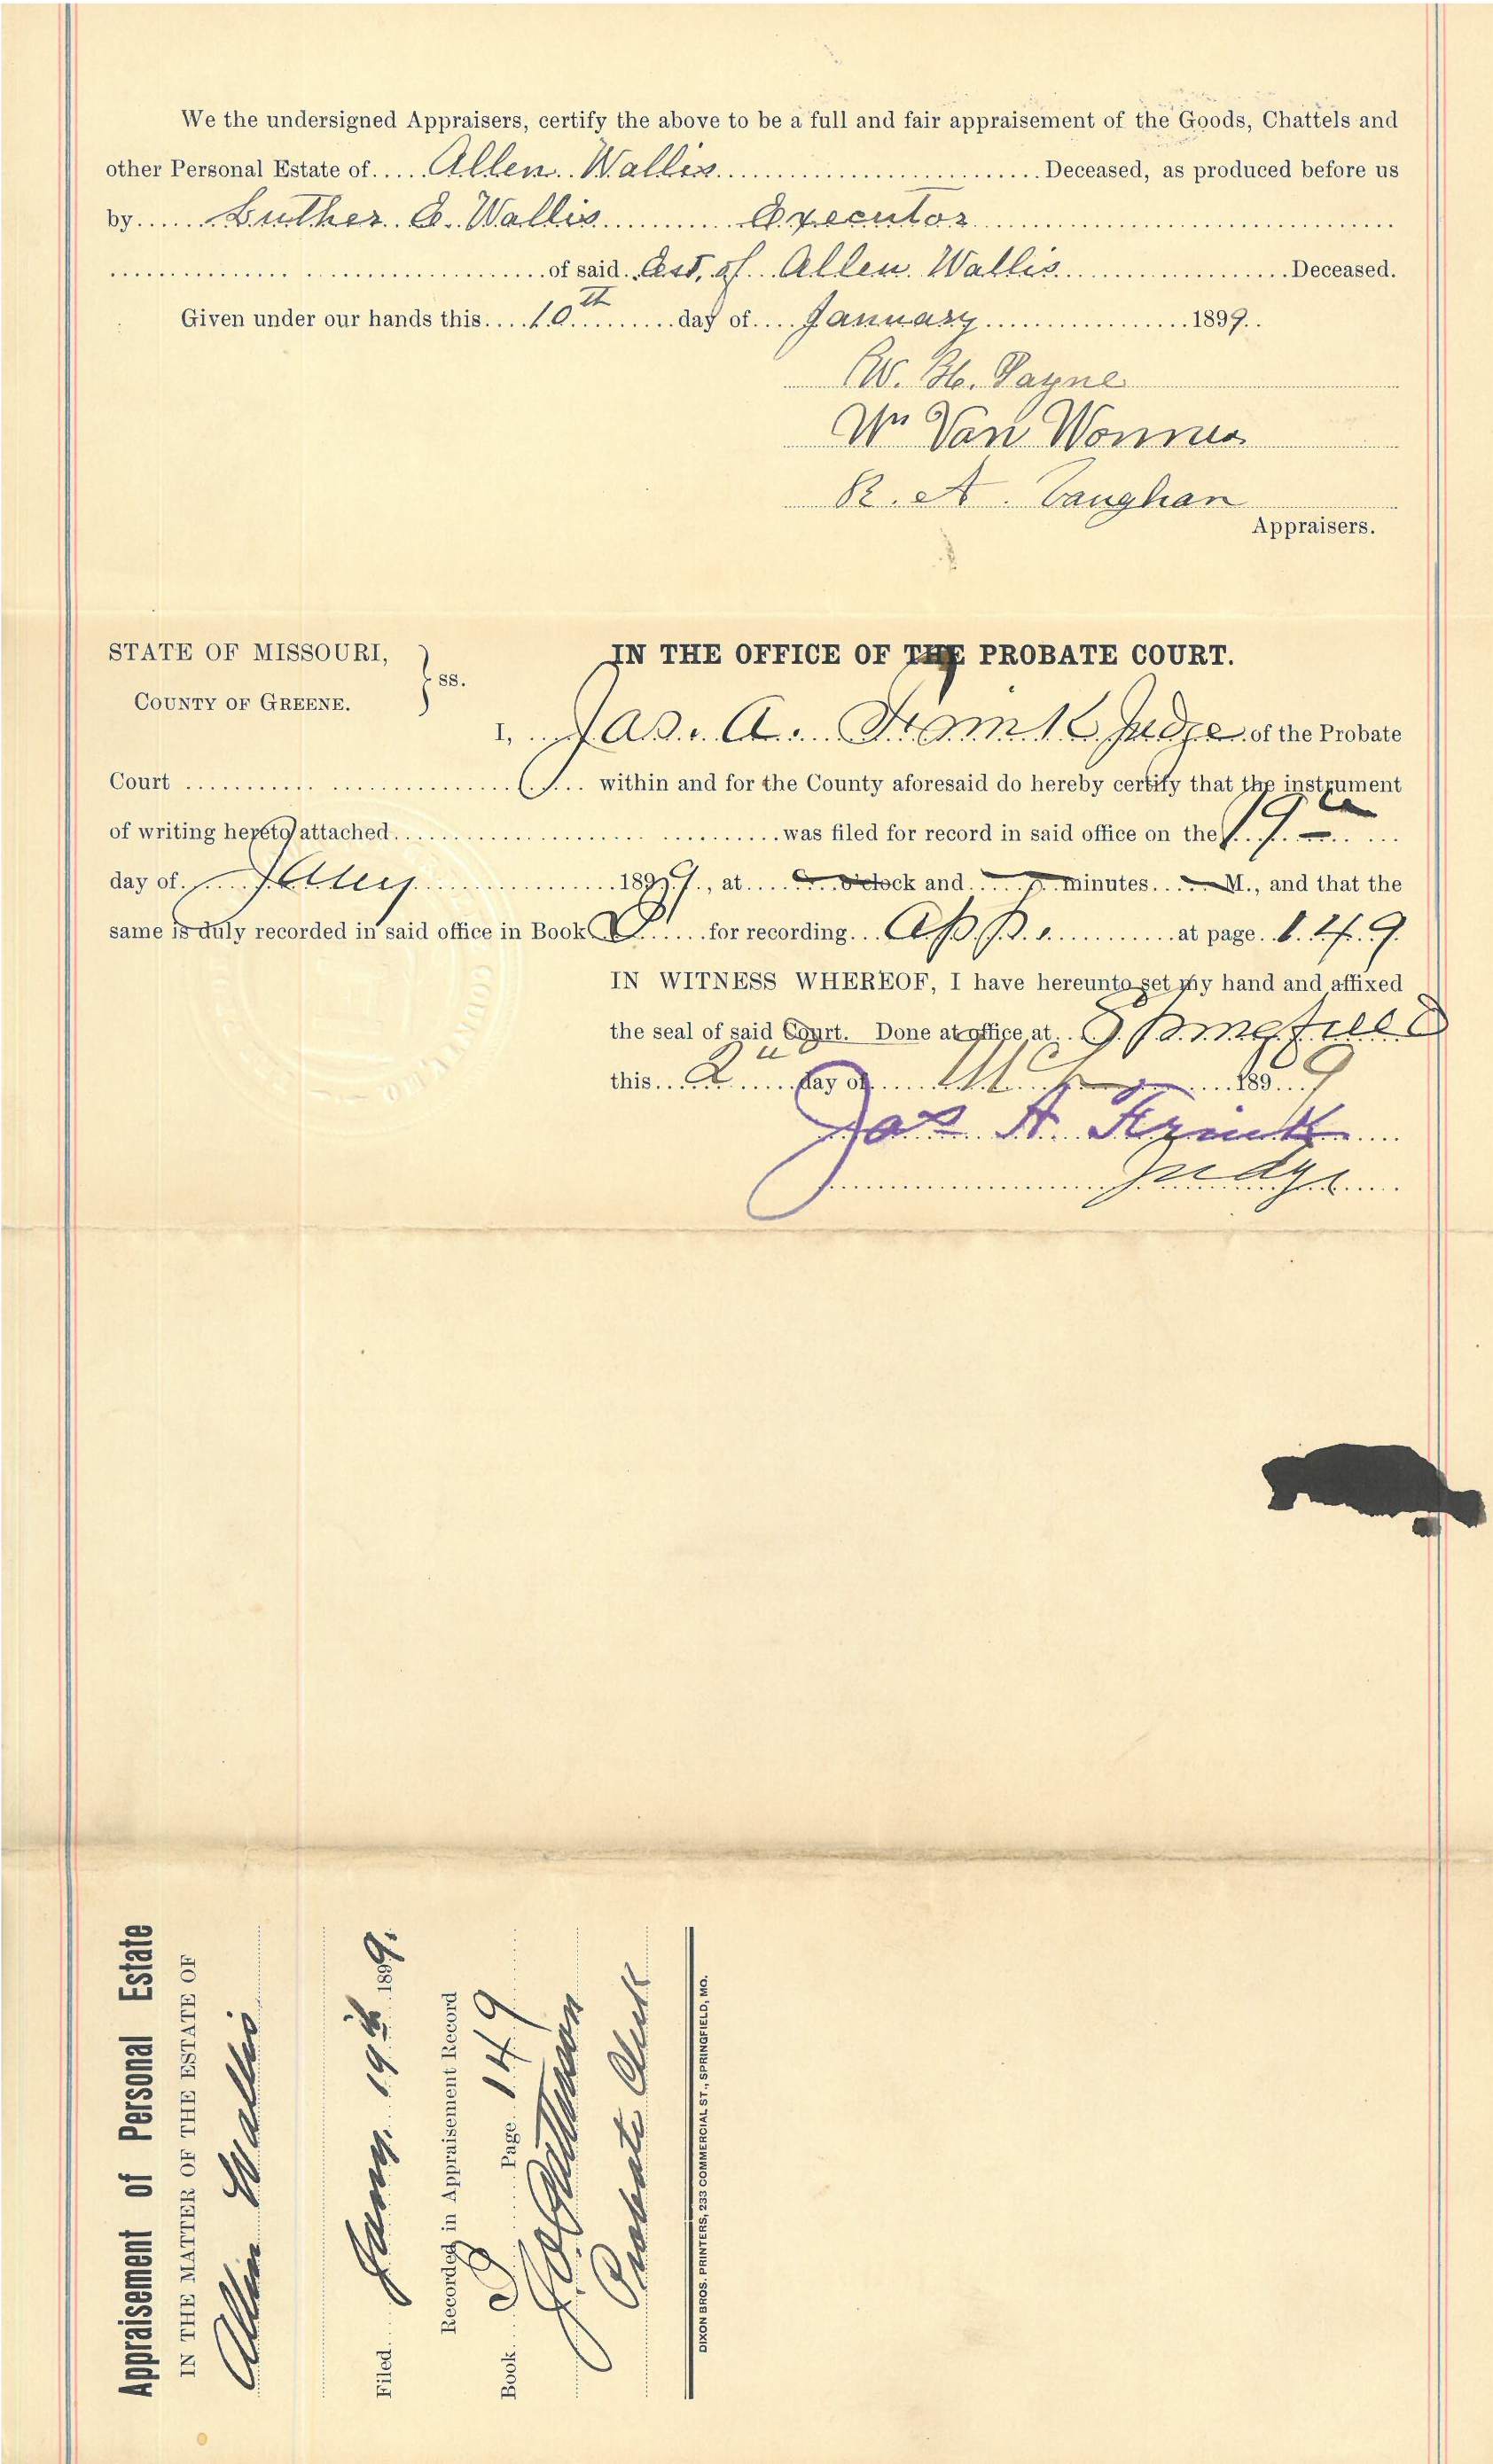 We the undersigned Appraisers, certify the above to be a full and fair appraisement of the Goods, Chattels and
other Personal Estate of Allen Wallis Deceased, as produced before us
by Luther E. Wallis Executor
of said Est. of Allen Wallis Deceased.
Given under our hands this 10th day of January 1899.
W. H. Payne
Wm Van Wormer
R. A. Vaughan
Appraisers.
STATE OF MISSOURI,
COUNTY OF GREENE. } ss.
IN THE OFFICE OF THE PROBATE COURT.
I, Jas. A. Frink Judge of the Probate
Court within and for the County aforesaid do hereby certify that the instrument
of writing hereto attached was filed for record in said office on the 19th
day of Jany 1899, at o'clock and minutes M., and that the
same is duly recorded in said office in Book D for recording App. at page 149
IN WITNESS WHEREOF, I have hereunto set my hand and affixed
the seal of said Court. Done at office at Springfield
this 2" day of Mch 1899
Jas A. Frink
Judge
Appraisement of Personal Estate
IN THE MATTER OF THE ESTATE OF
Allen Wallis
Filed Jany. 19th 1899.
Recorded in Appraisement Record
Book D Page 149
Probate Clerk
DIXON BROS. PRINTERS, 233 COMMERCIAL ST., SPRINGFIELD, MO.